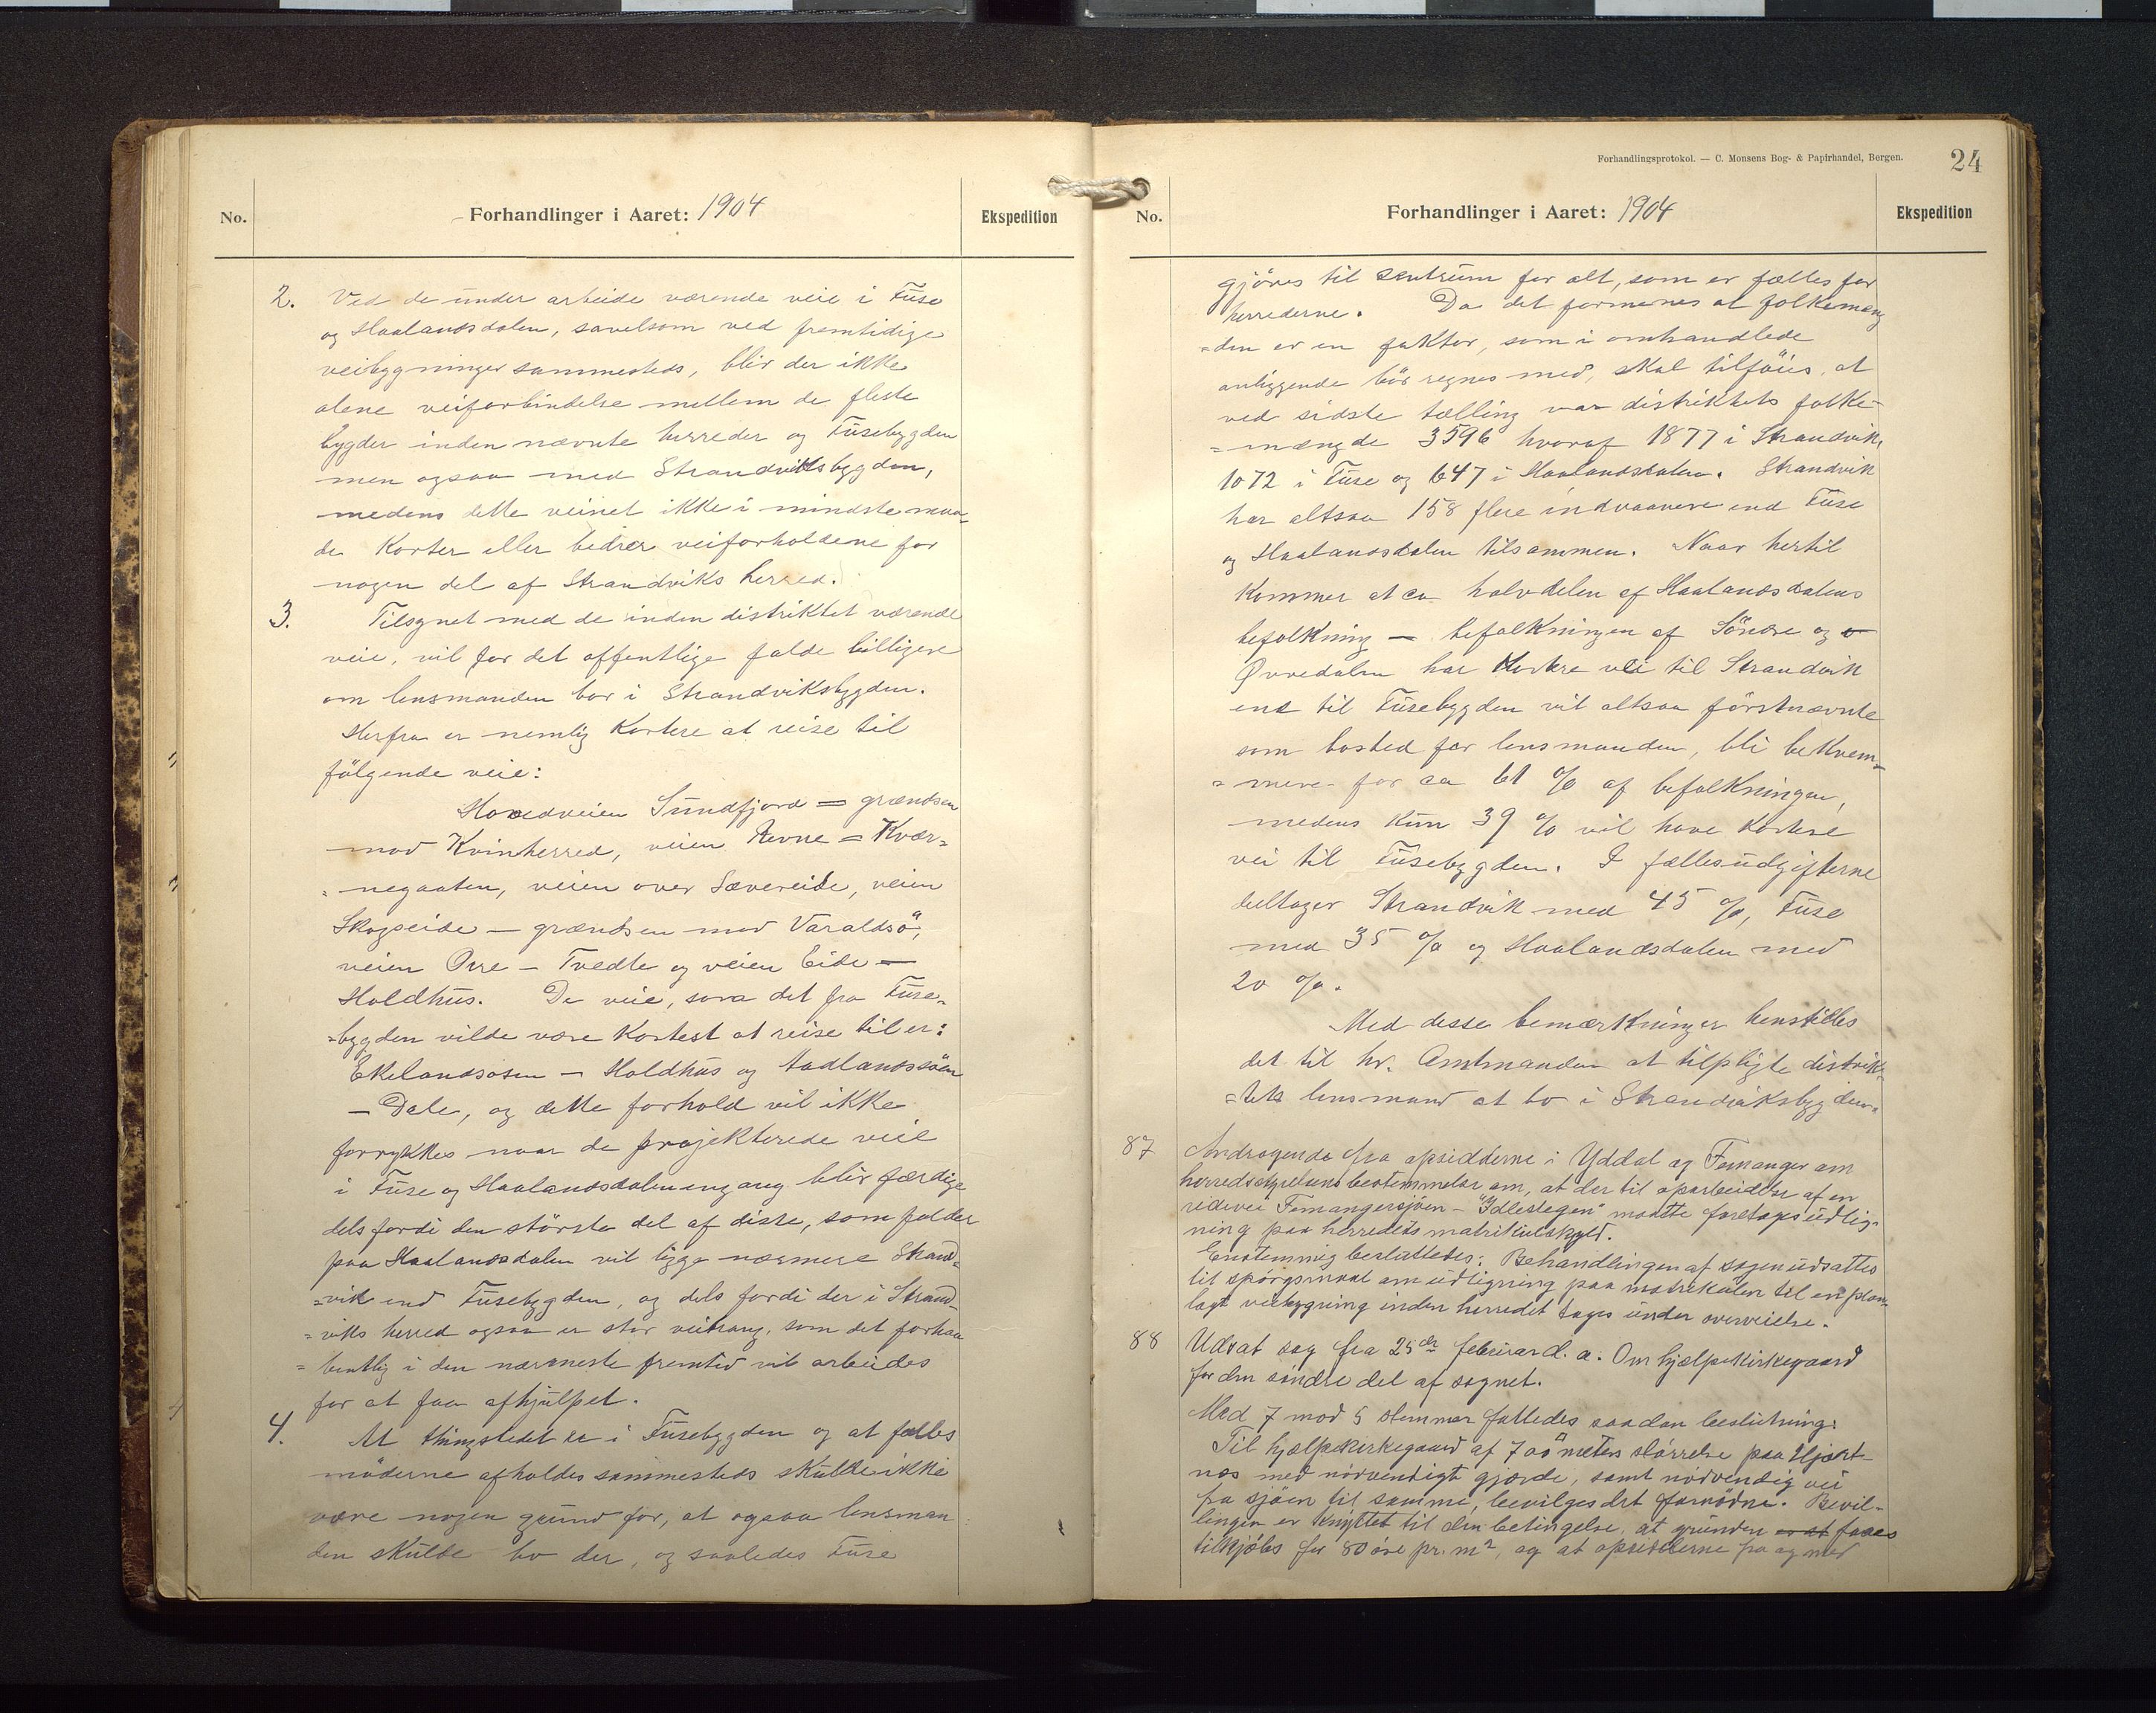 No.
Forhandlinger i Aaret: 1904
Ekspedition
2. Ved de under arbeide værende veie i Fuse
og Haalandsdalen, savelsom ved fremtidige
veibygninger sammesteds, blir der ikke
alene veiforbindelse mellem de fleste
bygder inden nævnte herreder og Fusebygden
men ogsaa med Strandviksbygden,
medens dette veinet ikke i mindste maa-
de korter eller bedrer veiforholdene for
nogen del af Strandviks herred.
3. Tilsynet med de inden distriktet værende
veie, vil for det offentlige falde billigere
om lensmanden bor i Strandviksbygden.
Herfra er nemlig kortere at reise til
følgende veie:
Hovedveien Sundfjord = grændsen
mod Kvinherred, veien Revne = Kvær-
=negaaten, veien over Sævereide, veien
Skogseide — grændsen mod Varaldsø,
veien Orre — Tvedte og veien Eide —
Holdhus. De veie, som det fra Fuse-
=bygden vilde være kortest at reise til er:
Ekelandsosen — Holdhus og Aadlandssøen
— Dale, og dette forhold vil ikke
forrykkes naar de projekterede veie
i Fuse og Haalandsdalen engang blir færdige
dels fordi den største del af disse, som falder
paa Haalandsdalen vil ligge nærmere Strand-
=vik end Fusebygden, og dels fordi der i Strand-
=viks herred ogsaa er stor veitrang, som det forhaa
=bentlig i den nærmeste fremtid vil arbeides
for at faa afhjulpet.
4. At thingstedet er i Fusebygden og at fælles
møderne afholdes sammesteds skulde ikke
være nogen grund for, at ogsaa lensman
den skulde bo der, og saaledes Fuse
Forhandlingsprotokol. — C. Monsens Bog- & Papirhandel, Bergen.
24
No.
Forhandlinger i Aaret: 1904
Ekspedition
gjøres til sentrum for alt, som er fælles for
herrederne. Da det formenes at folkemæng
=den er en faktor, som i omhandlede
anliggende bør regnes med, skal tilføies, at
ved sidste tælling var distriktets folke-
=mængde 3596 hvoraf 1877 i Strandvik,
1072 i Fuse og 647 i Haalandsdalen. Strandvik
har altsaa 158 flere indvaanere end Fuse
og Haalandsdalen tilsammen. Naar hertil
kommer at ca halvdelen af Haalandsdalens
befolkning — befolkningen af Søndre og o
Øvredalen har kortere vei til Strandvik
end til Fusebygden vil altsaa førstnævnte
som bosted for lensmanden, bli bekvem-
=mere for ca 61 % af befolkningen,
medens kun 39 % vil have kortere
vei til Fusebygden. I fællesudgifterne
deltager Strandvik med 45 %, Fuse
med 35 % og Haalandsdalen med
20 %.
Med disse bemærkninger henstilles
det til hr. Amtmanden at tilpligte distrik-
=tets lensmand at bo i Strandviksbygden.
87 Andragende fra opsidderne i Yddal og Femanger om
herredsstyrelsens bestemmelse om, at der til oparbeidelse af en
ridevei Femangersjøen — "Idlestegen" maatte foretages udlig-
ning paa herredets matrikulskyld.
Enstemmig besluttedes: Behandlingen af sagen udsættes
til spørgsmaal om udligning paa matrikulen til en plan-
lagt veibygning inden herredet tages under overveielse.
88 Udsat sag fra 25de februar d. a. Om hjælpekirkegaard
for den søndre del af sognet.
Med 7 mod 5 stemmer fattedes saadan beslutning:
Til hjælpekirkegaard af 700 meters størrelse paa Hjært-
nes med nødvendigt gjærde, samt nødvendig vei
fra sjøen til samme, bevilges det fornødne. Bevil-
lingen er knyttet til den betingelse, at grunden er at faaes
tilkjøbs for 80 øre pr. m², og at opsidderne fra og med